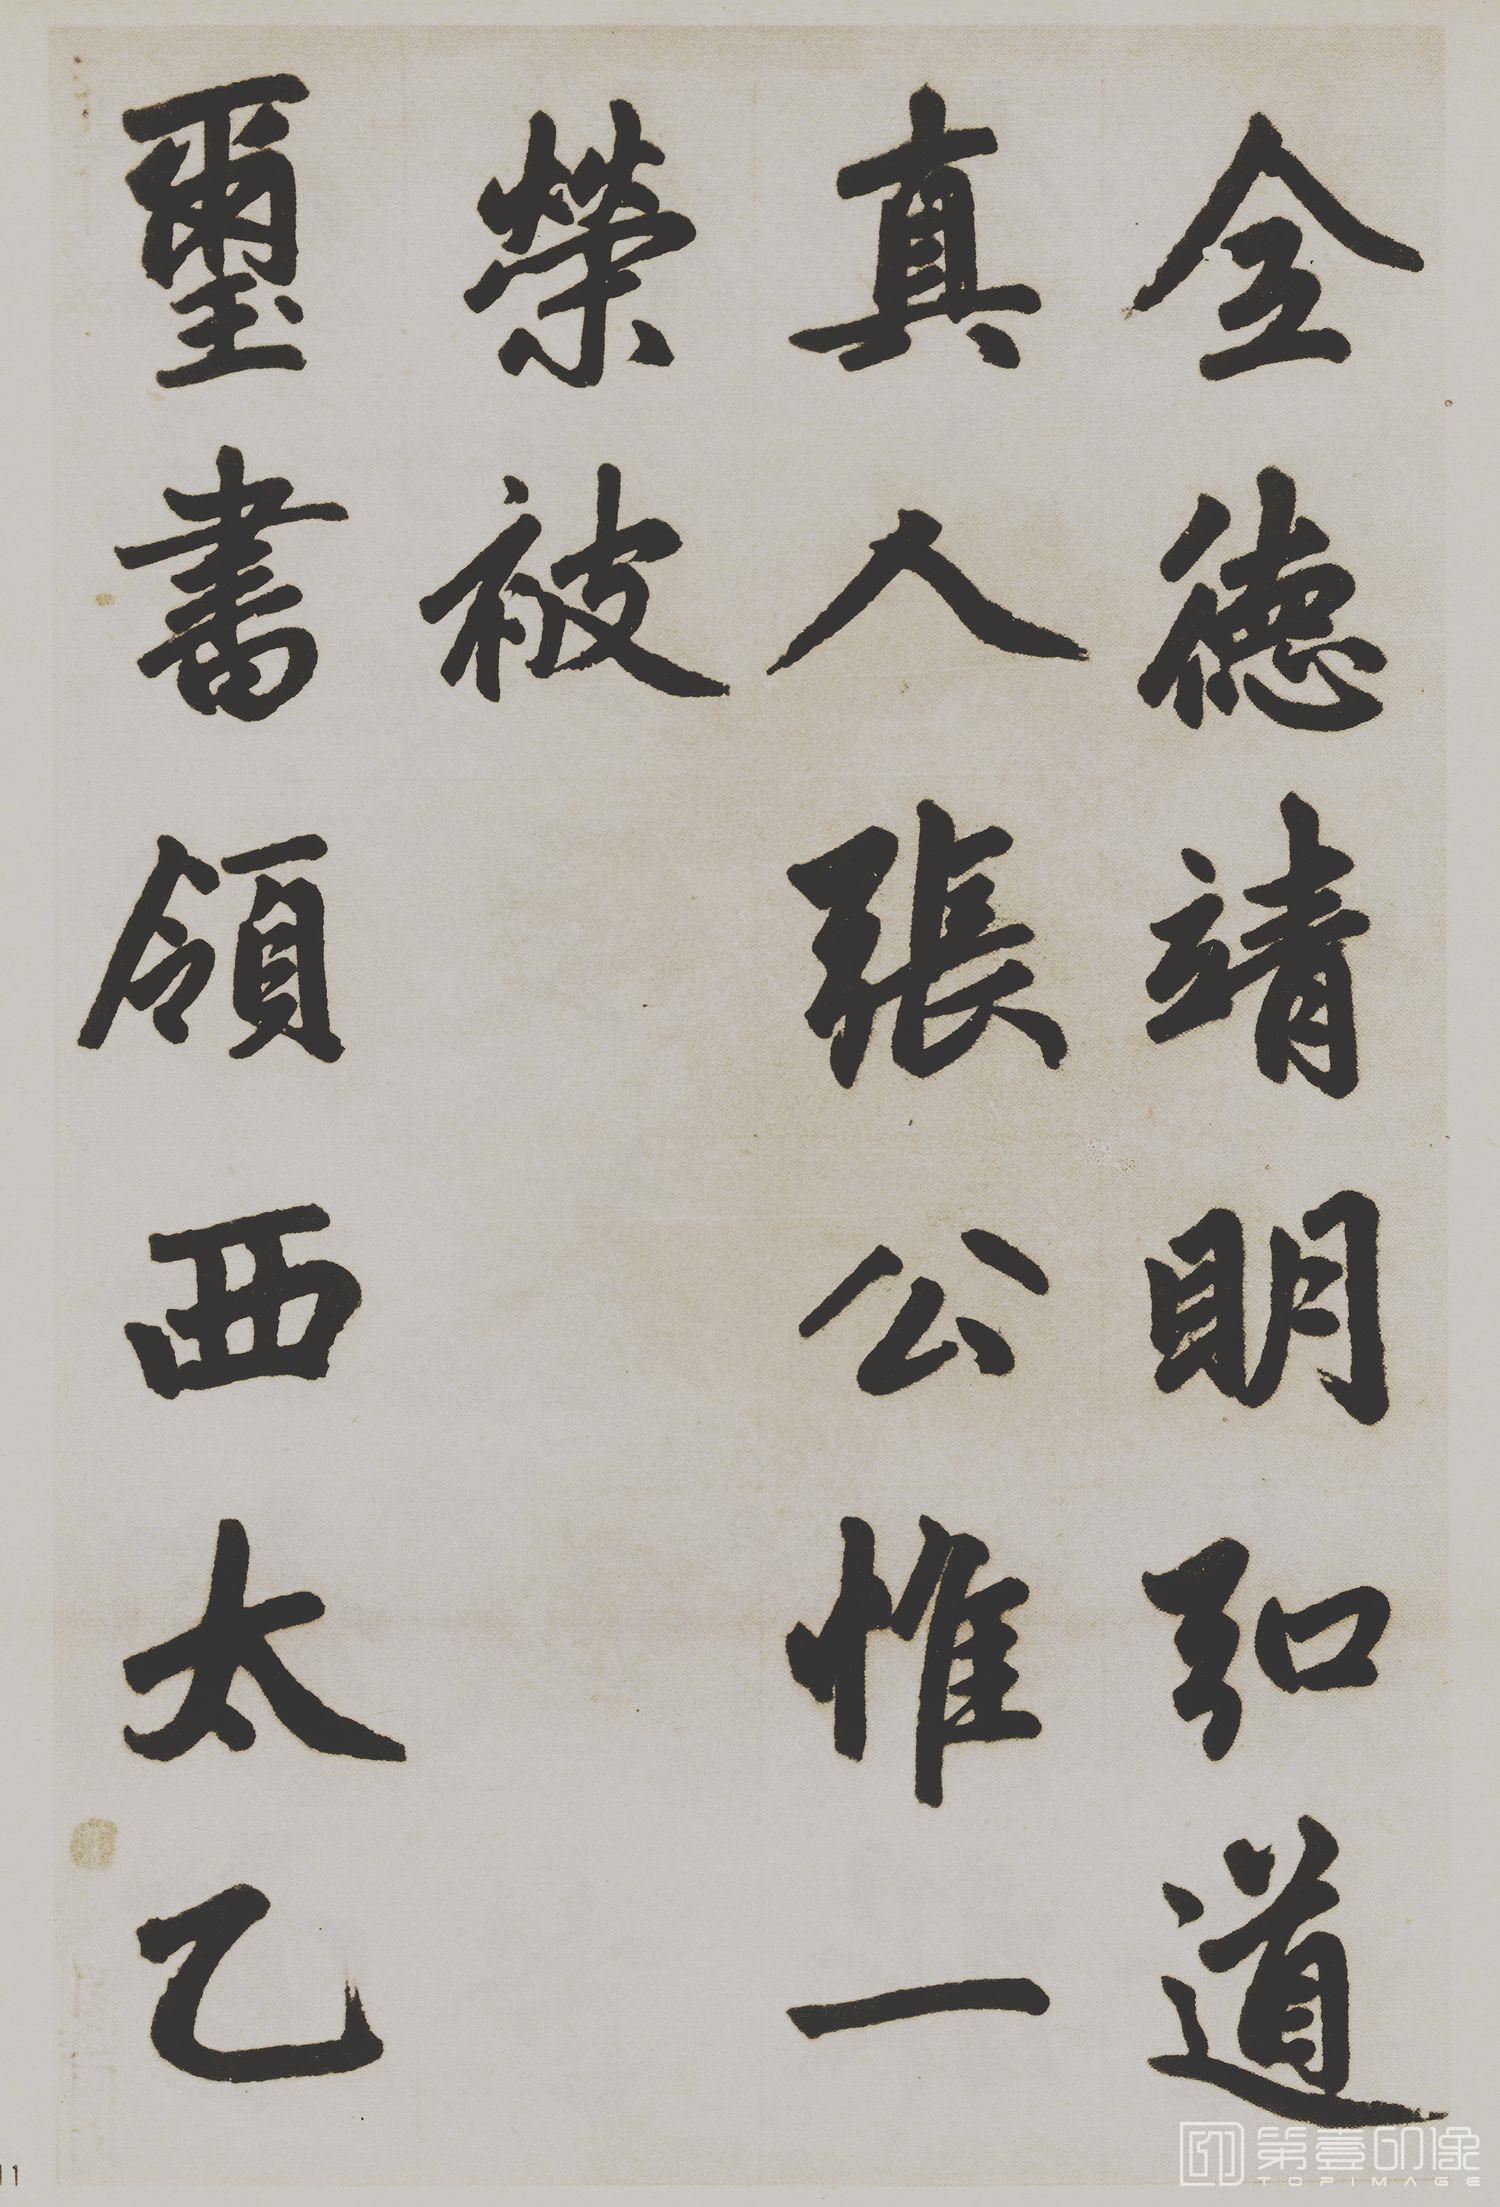 全德靖明弘道
真人張公惟一
榮被
璽書領西太乙
11
第壹印像
TOPIMAGE